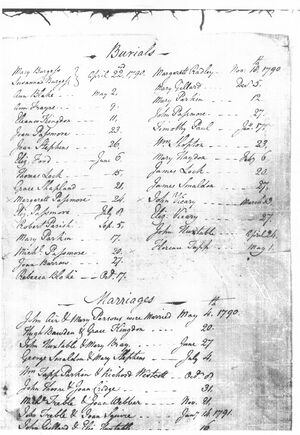 Burials
Mary Burgess
Susanna Burgess } April 22nd 1790
Ann Blake May 2.
Ann Frayne 9.
Eleanor Kingdon 11.
Joan Passmore 23.
Joan Stephens 26.
Eliz. Ford June 6.
Thomas Lock 15.
Grace Shapland 21.
x Margaret Passmore 24.
Eliz. Passmore July 8
Robert Parish Sep. 5.
Mary Parkin 17.
Mich. Passmore 20.
Joan Morrow 27.
Rebecca Blake Oct. 17.
Margarett Nov. 16th 1790
Mary Gollard Dec. 5.
Mary Parkin 12.
John Passmore 27.
Timothy Paul Jan. 17.
Wm 23.
Mary Haydon Feb. 6
James Lock 20.
James Smaldon 27.
John Vicary March 13
Eliz. Vicary 27.
John Huxtable April 24
Florence Tapp May 1.
Marriages
John Air & Mary Parsons were Married May 4th 1790.
Hugh Bawden & Grace Kingdon 20.
John Huxtable & Mary Bray June 27
George Smaldon & Mary Stephens July 4.
Wm Tapp Parkin & Richord Westcott Oct. 8
John Thorne & Joan 31.
Mich. Treble & Joan Webber Nov. 21.
John Treble & Joan Squire Jan. 16th 1791.
John Gollard & Eliz. Huxtable 16